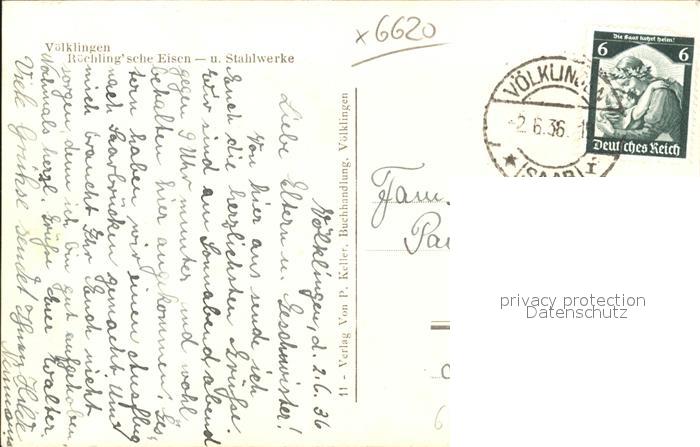 Völklingen
Röchling'sche Eisen — u. Stahlwerke
x 6620
Die Saar kehrt heim!
6 6
Deutsches Reich
VÖLKLINGEN
-2.6.36.
(SAAR) 1
11 - Verlag Von P. Keller, Buchhandlung, Völklingen
Fam.
privacy protection
Datenschutz
Völklingen, d. 2.6.36
Liebe Eltern u. Geschwister!
Von hier aus sende ich
Euch die herzlichsten Grüße.
Wir sind am Sonnabend abend
gegen 9 Uhr munter und wohl
behalten hier angekommen. Ges-
tern haben wir einen Ausflug
nach Saarbrücken gemacht. Um
mich braucht Ihr Euch nicht
sorgen, denn ich bin gut aufgehoben.
Nochmals herzl. Grüße Euer Walter.
Viele Grüsse sendet Ihnen Hilde